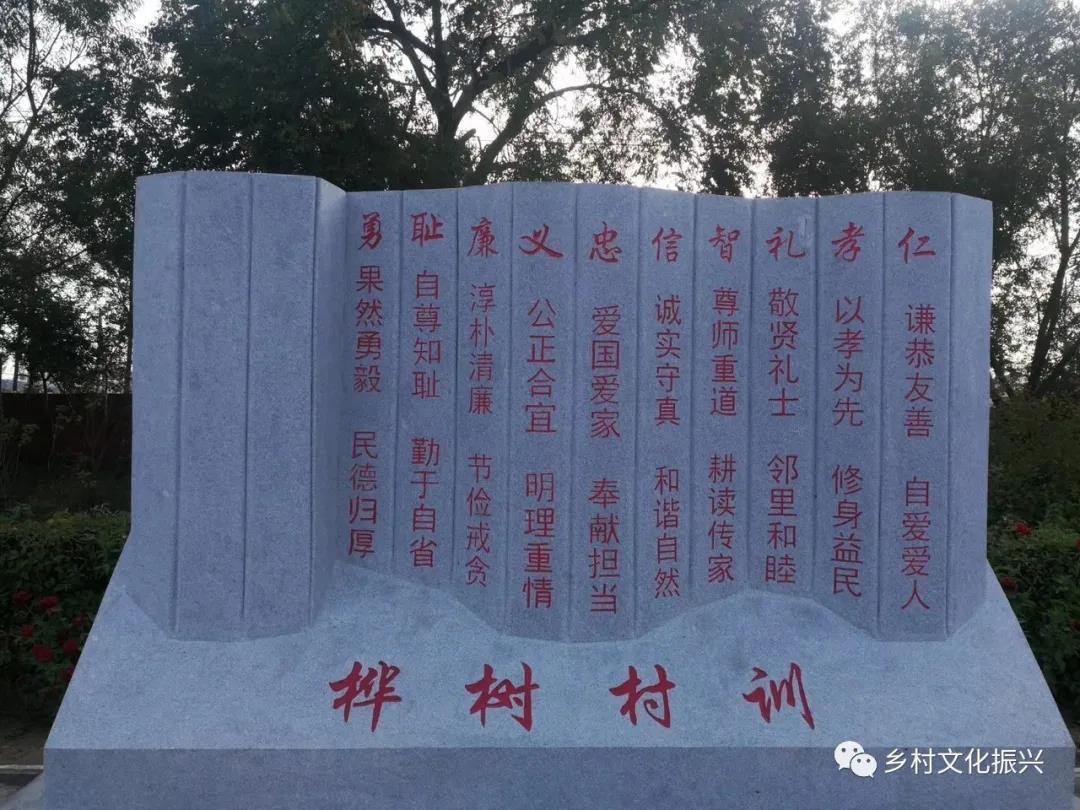 仁 谦恭友善 自爱爱人
孝 以孝为先 修身益民
礼 敬贤礼士 邻里和睦
智 尊师重道 耕读传家
信 诚实守真 和谐自然
忠 爱国爱家 奉献担当
义 公正合宜 明理重情
廉 淳朴清廉 节俭戒贪
耻 自尊知耻 勤于自省
勇 果然勇毅 民德归厚
桦树村训
乡村文化振兴